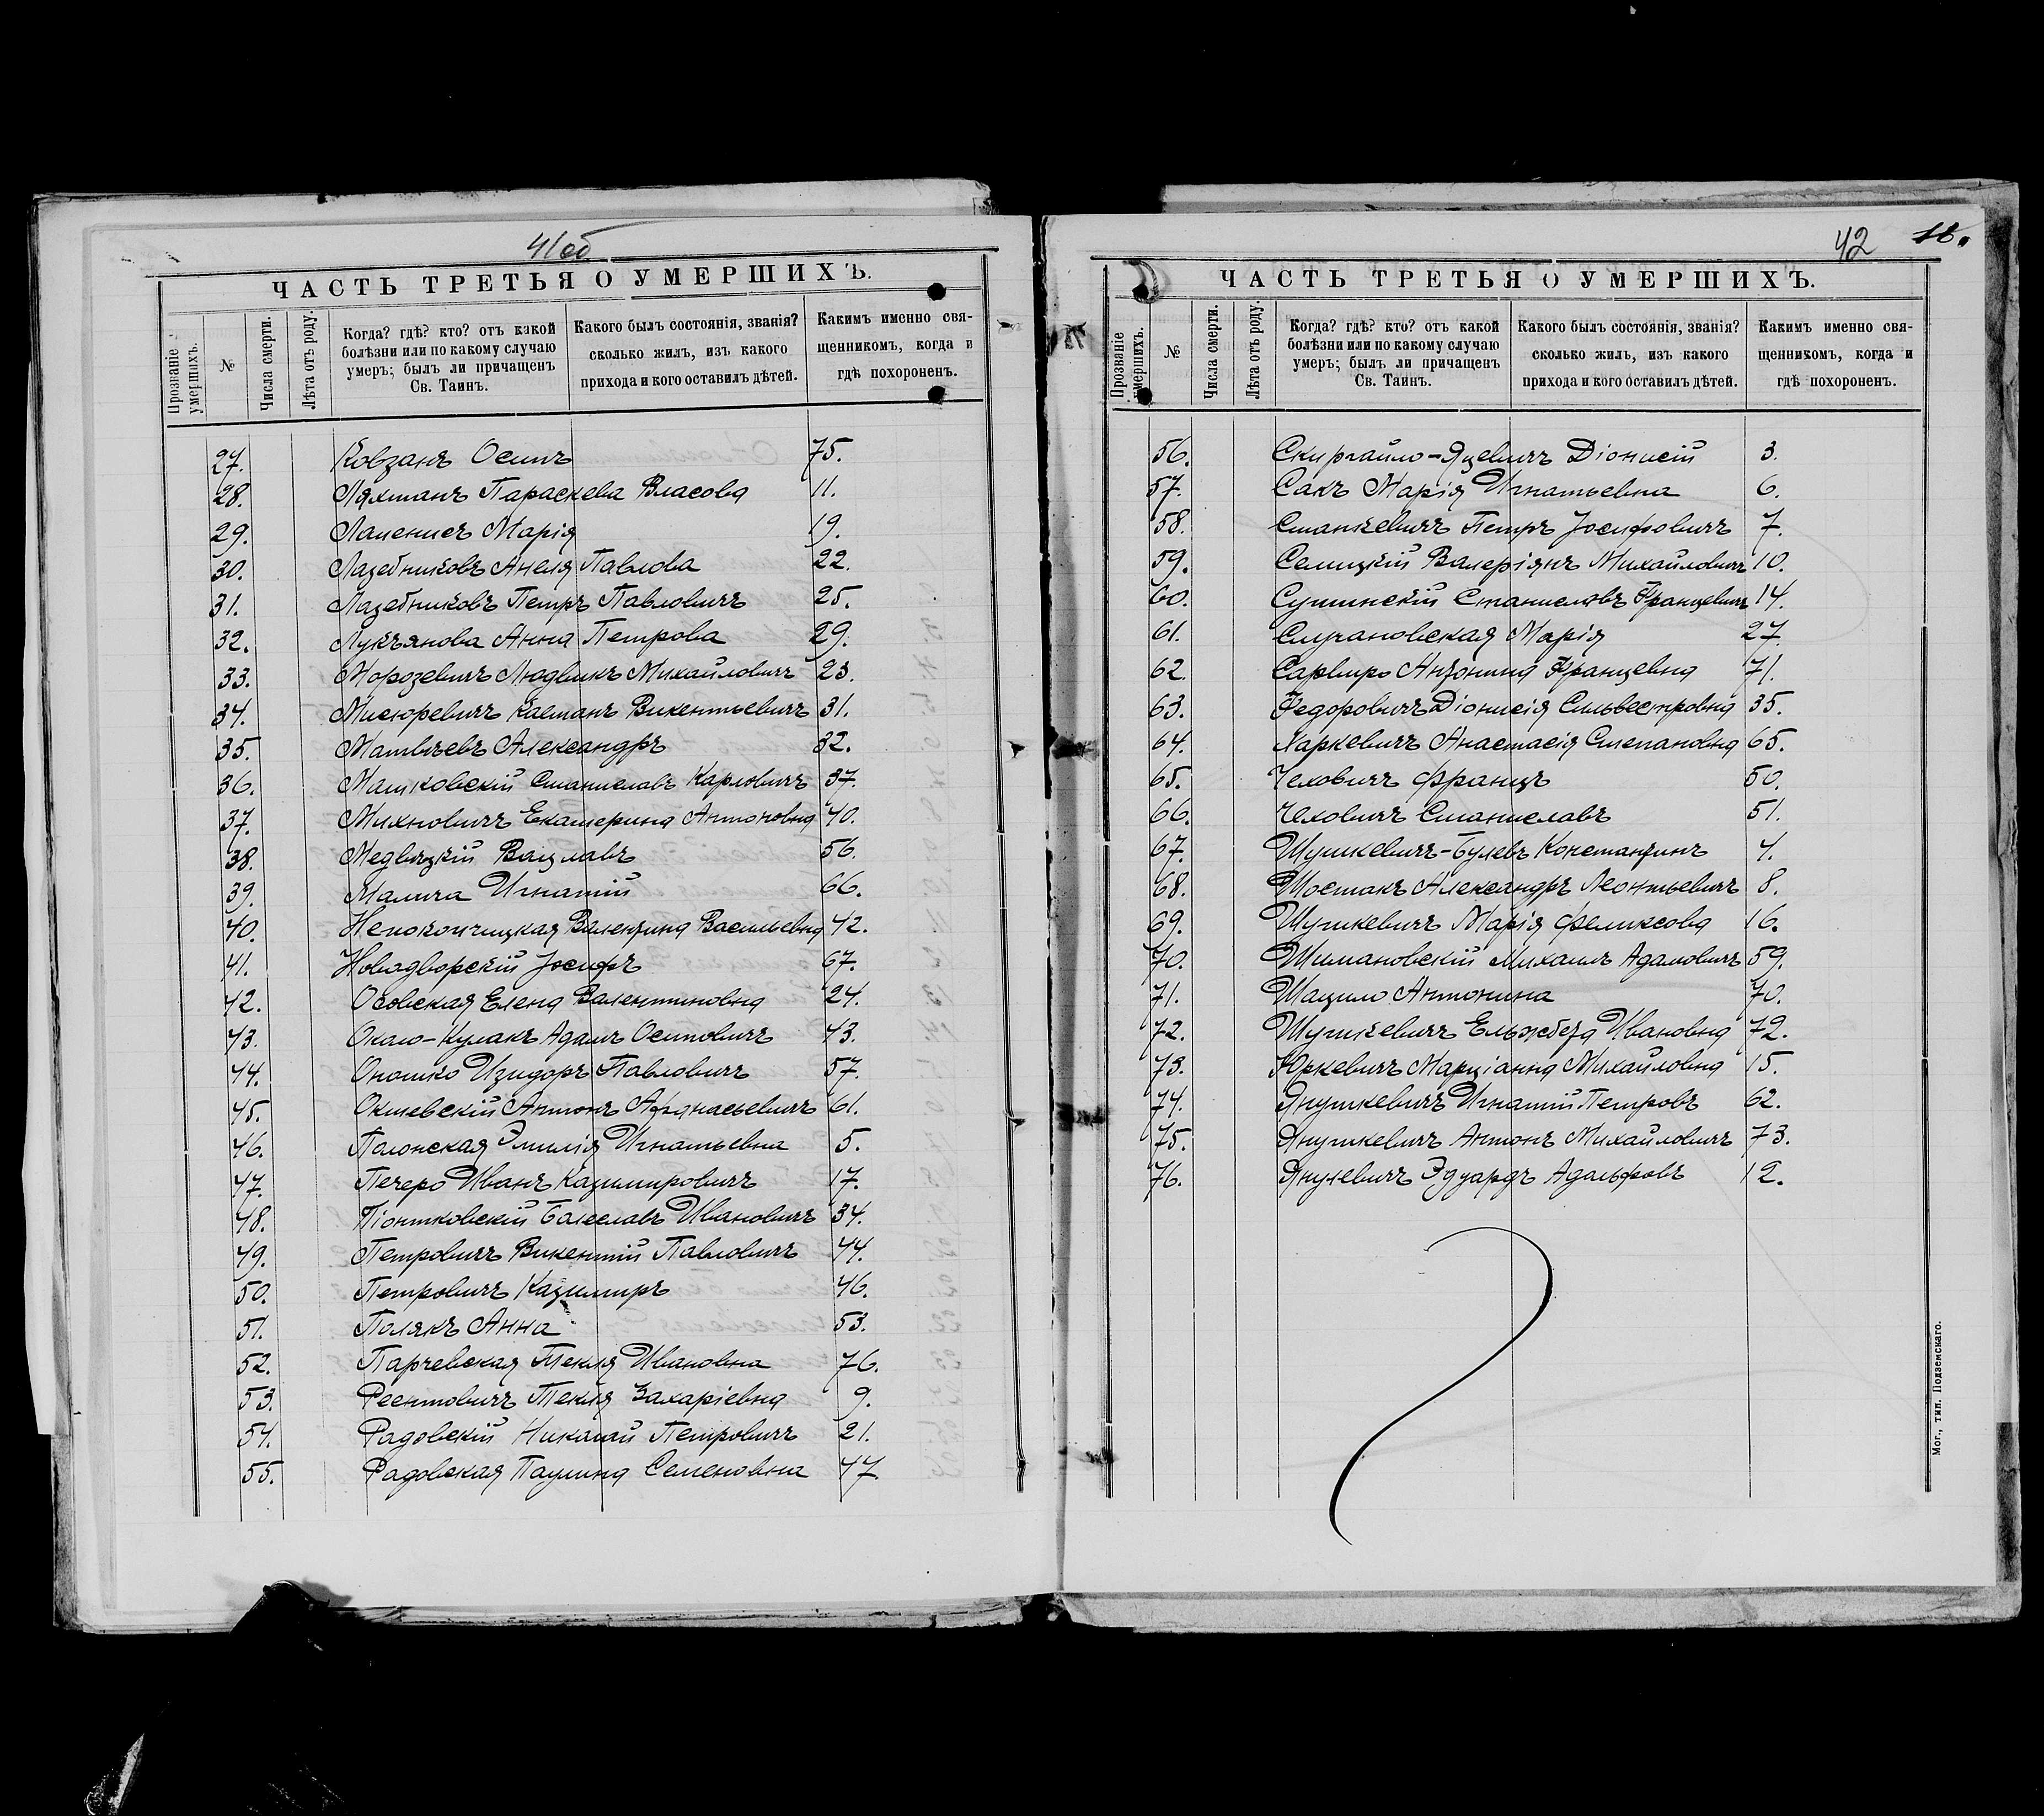 41об
ЧАСТЬ ТРЕТЬЯ О УМЕРШИХЪ.
Прозваніе умершихъ.
№
Числа смерти.
Лѣта отъ роду.
Когда? гдѣ? кто? отъ какой
болѣзни или по какому случаю
умеръ; былъ ли причащенъ
Св. Таинъ.
Какого былъ состоянія, званія?
сколько жилъ, изъ какого
прихода и кого оставилъ дѣтей.
Какимъ именно свя-
щенникомъ, когда и
гдѣ похороненъ.
27. Ковзанъ Осипъ 75.
28. Ляхманъ Параскева Власова 11.
29. Лапенисъ Марія 19.
30. Лазебниковъ Анеля Павлова 22.
31. Лазебниковъ Петръ Павловичъ 25.
32. Лукъянова Анна Петрова 29.
33. Морозевичъ Людвикъ Михайловичъ 23.
34. Мисюревичъ Каетанъ Викентьевичъ 31.
35. Матвѣевъ Александръ 32.
36. Машковскій Станиславъ Карловичъ 37.
37. Михновичъ Екатерина Антоновна 40.
38. Медвѣцкій Вацлавъ 56.
39. Малыга Игнатій 66.
40. Непокойчицкая Валентина Васильевна 42.
41. Новадворскій Іосифъ 67.
42. Осовская Елена Валентиновна 24.
43. Окало-Кулакъ Адамъ Осиповичъ 43.
44. Оношко Изидоръ Павловичъ 57.
45. Окшевскій Антонъ Афанасьевичъ 61.
46. Полонская Эмилія Игнатьевна 5.
47. Печеро Иванъ Казимировичъ 17.
48. Піонтковскій Балеславъ Ивановичъ 34.
49. Петровичъ Викентій Павловичъ 44.
50. Петровичъ Казимиръ 46.
51. Полякъ Анна 53.
52. Парчевская Текля Ивановна 76.
53. Реентовичъ Текля Захаріевна 9.
54. Радовскій Николай Петровичъ 21.
55. Радовская Паулина Семеновна 47
42 18.
ЧАСТЬ ТРЕТЬЯ О УМЕРШИХЪ.
Прозваніе умершихъ.
№
Числа смерти.
Лѣта отъ роду.
Когда? гдѣ? кто? отъ какой
болѣзни или по какому случаю
умеръ; былъ ли причащенъ
Св. Таинъ.
Какого былъ состоянія, званія?
сколько жилъ, изъ какого
прихода и кого оставилъ дѣтей.
Какимъ именно свя-
щенникомъ, когда и
гдѣ похороненъ.
56. Скиргайло-Яцевичъ Діонисій 3.
57. Сакъ Марія Игнатьевна 6.
58. Станкевичъ Петръ Іосифовичъ 7.
59. Селицкій Валеріянъ Михайловичъ 10.
60. Сушинскій Станиславъ Францевичъ 14.
61. Слугановская Марія 27
62. Сарвиро Антонина Францевна 71.
63. Федоровичъ Діонисія Сильвестровна 35.
64. Харкевичъ Анастасія Степановна 65.
65. Чеховичъ Францъ 50.
66. Чеховичъ Станиславъ 51.
67. Шушкевичъ-Булевъ Константинъ 4.
68. Шостакъ Александръ Леонтьевичъ 8.
69. Шушкевичъ Марія Феликсова 16.
70. Шимановскій Михаилъ Адамовичъ 59.
71. Шацило Антонина 70.
72. Шушкевичъ Ельжбета Ивановна 72.
73. Юркевичъ Марціанна Михайловна 15.
74. Янушкевичъ Игнатій Петровъ 62.
75. Янушкевичъ Антонъ Михайловичъ 73.
76. Янулевичъ Эдуардъ Адальфовъ 12.
Мог., тип. Подземскаго.